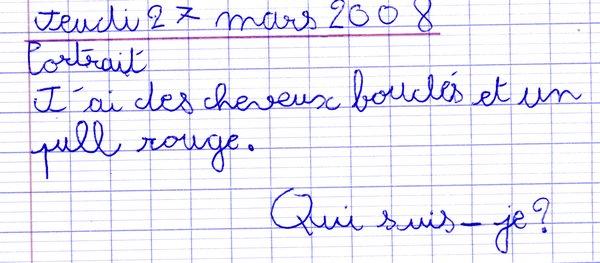 Jeudi 27 mars 2008
Portrait
J'ai des cheveux bouclés et un
pull rouge.
Qui suis-je?